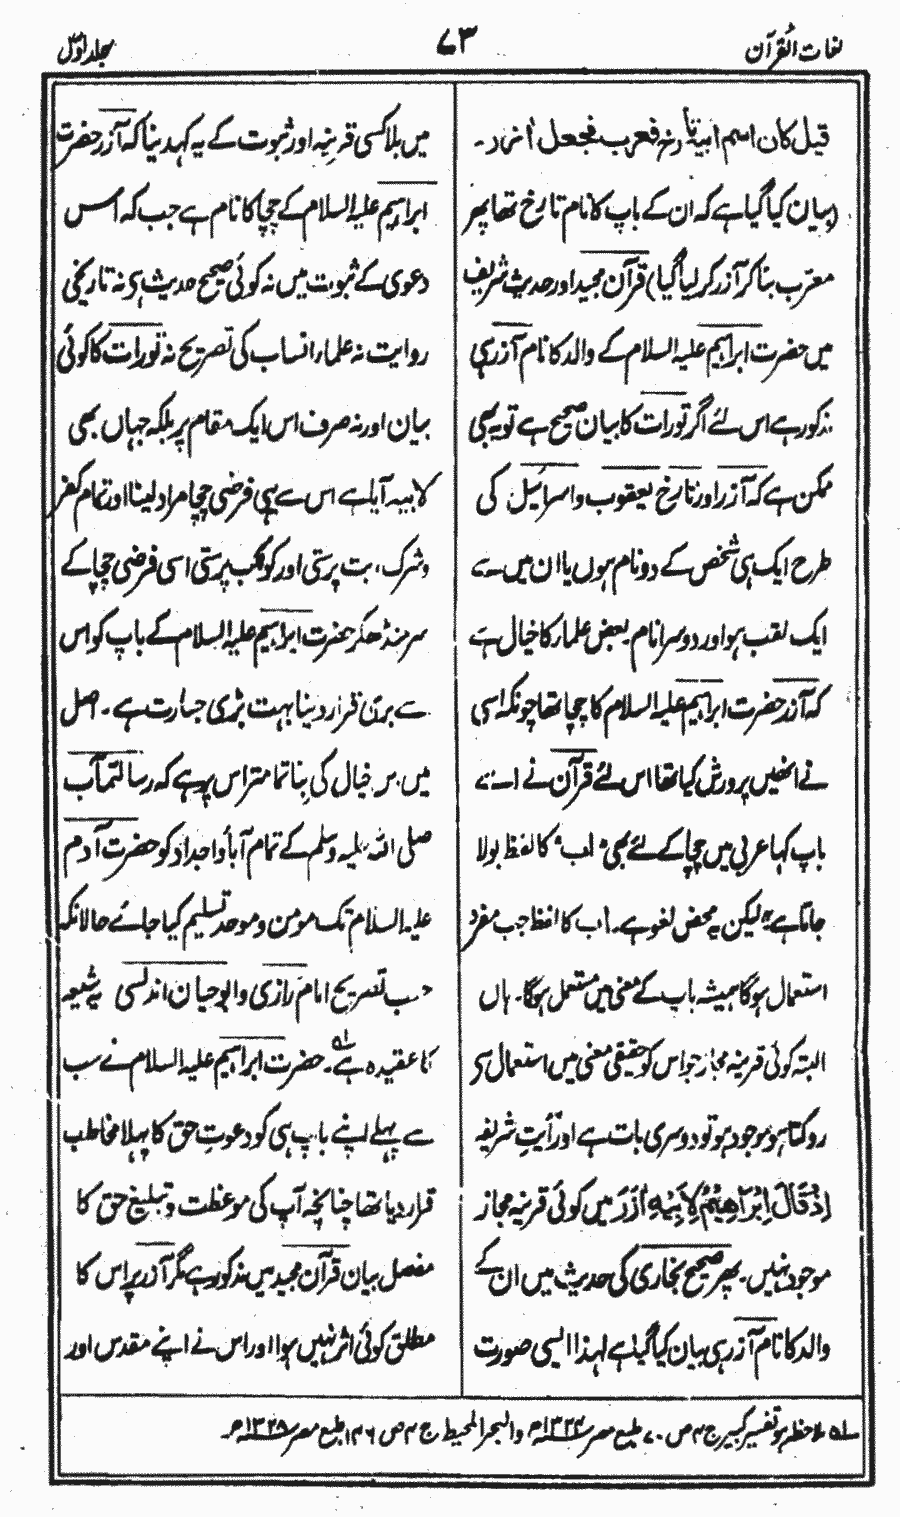 لغات القرآن
۷۳
جلد اوّل
قیل کان اسم ابیہ تارخ فعرب فجعل اٰزر۔
(بیان کیا گیا ہے کہ ان کے باپ کا نام تارخ تھا پھر
معرّب بنا کر آزر کر لیا گیا) قرآن مجید اور حدیث شریف
میں حضرت ابراہیم علیہ السلام کے والد کا نام آزر ہی
مذکور ہے اس لئے اگر تورات کا بیان صحیح ہے تو یہ بھی
ممکن ہے کہ آزر اور تارخ یعقوب و اسرائیل کی
طرح ایک ہی شخص کے دو نام ہوں یا ان میں سے
ایک لقب ہو اور دوسرا نام بعض علمار کا خیال ہے
کہ آزر حضرت ابراہیم علیہ السلام کا چچا تھا چونکہ اسی
نے انھیں پرورش کیا تھا اس لئے قرآن نے اسے
باپ کہا عربی میں چچا کے لئے بھی "اب" کا لفظ بولا
جاتا ہے" لیکن یہ محض لغو ہے۔ اب کا لفظ جب مفرد
استعمال ہوگا ہمیشہ باپ کے معنی میں مستعمل ہوگا۔ ہاں
البتہ کوئی قرینہ مجاز جو اس کو حقیقی معنی میں استعمال سے
روکتا ہو موجود ہو تو دوسری بات ہے اور آیتِ شریفہ
اِذْ قَالَ اِبْرَاهِيْمُ لِاَبِيْهِ اٰزَرَ میں کوئی قرینہ مجاز
موجود نہیں۔ پھر صحیح بخاری کی حدیث میں ان کے
والد کا نام آزر ہی بیان کیا گیا ہے لہذا ایسی صورت
میں بلا کسی قرینہ اور ثبوت کے یہ کہدینا کہ آزر حضرت
ابراہیم علیہ السلام کے چچا کا نام ہے جب کہ اس
دعوی کے ثبوت میں نہ کوئی صحیح حدیث ہی نہ تاریخی
روایت نہ علمار انساب کی تصریح نہ تورات کا کوئی
بیان اور نہ صرف اس ایک مقام پر بلکہ جہاں بھی
لابیہ آیا ہے اس سے یہی فرضی چچا مراد لینا اور تمام کفر
و شرک، بت پرستی اور کوکب پرستی اسی فرضی چچا کے
سر منڈھکر حضرت ابراہیم علیہ السلام کے باپ کو اس
سے بری قرار دینا بہت بڑی جسارت ہے۔ اصل
میں اس خیال کی بنا تمامتر اس پر ہے کہ رسالتمآب
صلی اللہ علیہ وسلم کے تمام آبأ و اجداد کو حضرت آدم
علیہ السلام تک مومن و موحد تسلیم کیا جائے حالانکہ
حسب تصریح امام رازی و ابو حیان اندلسی یہ شیعہ
کا عقیدہ ہے ۱ہ۔ حضرت ابراہیم علیہ السلام نے سب
سے پہلے اپنے باپ ہی کو دعوتِ حق کا پہلا مخاطب
قرار دیا تھا چنانچہ آپ کی موعظت و تبلیغ حق کا
مفصل بیان قرآن مجید میں مذکور ہے مگر آزر پر اس کا
مطلق کوئی اثر نہیں ہوا اور اس نے اپنے مقدس اور
۱ہ ملاحظہ ہو تفسیر کبیر ج ۴ ص ۷۰ طبع مصر ۱۳۲۴ھ والبحر المحیط ج ۴ ص ۱۶۴ طبع مصر ۱۳۲۸ھ۔